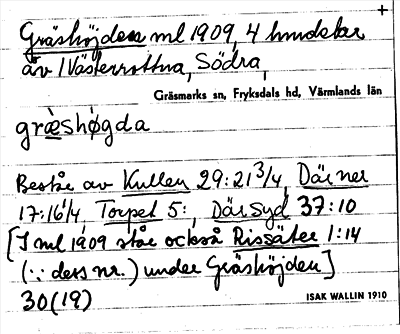 +
Gräshöjden ml 1909, 4 hundelar
av 1 Västerrottna, Södra,
Gräsmarks sn, Fryksdals hd, Värmlands län
græshøgda
Består av Kullen 29:21 3/4, Där ner
17:16 1/4, Torpet 5:, Där syd 37:10
[I ml 1909 står också Rissäter 1:14
(∵ dess nr.) under Gräshöjden]
30(19)
ISAK WALLIN 1910